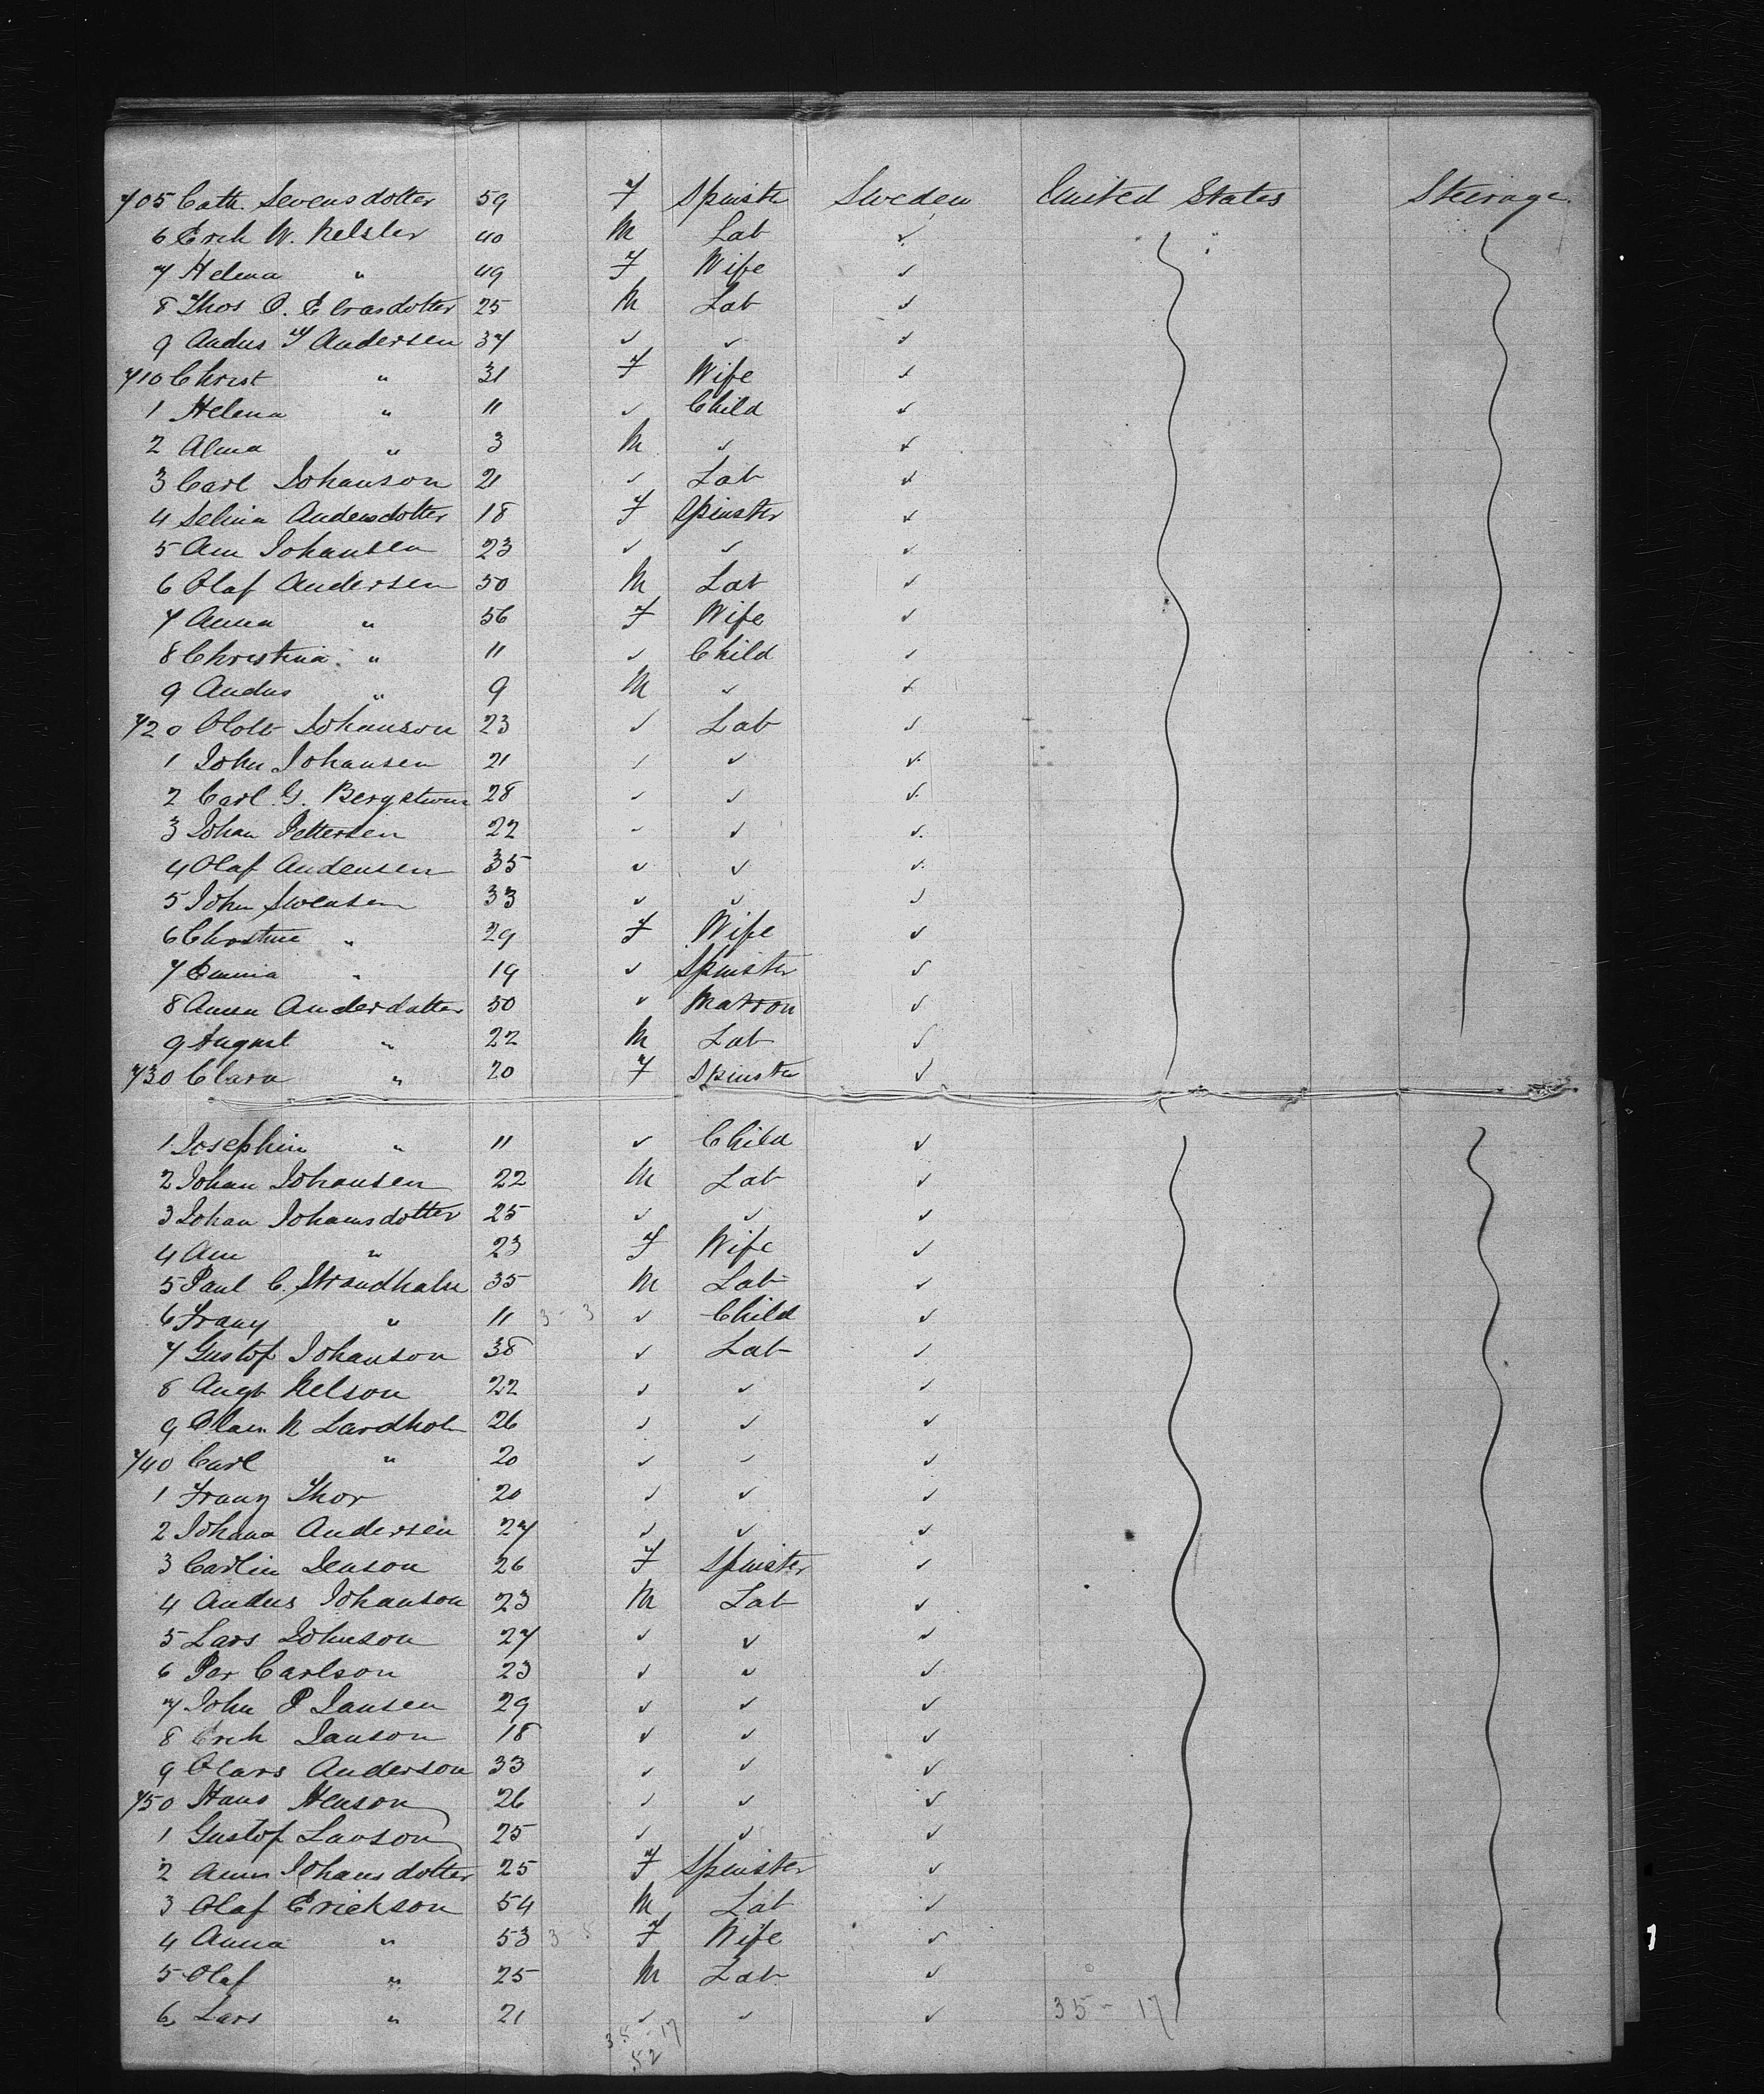 705 Cath. Sevensdotter 59 F Spinster Sweden United States Steerage.
6 Erik W. Nelsler 40 M Lab ✓
7 Helena " 49 F Wife ✓
8 Thos O. 25 M Lab ✓
9 Andus Andersen 37 ✓ ✓ ✓
710 Christ " 31 F Wife ✓
1 Helena " 11 ✓ Child ✓
2 Alma " 3 M ✓ ✓
3 Carl Johanson 21 ✓ Lab ✓
4 Selina Andersdotter 18 F Spinster ✓
5 Ann Johansen 23 ✓ ✓ ✓
6 Olaf Andersen 50 M Lab ✓
7 Anna " 56 F Wife ✓
8 Christina " 11 ✓ Child ✓
9 Andus " 9 M ✓ ✓
720 Johanson 23 ✓ Lab ✓
1 John Johansen 21 ✓ ✓ ✓
2 Carl G. Bergstrom 28 ✓ ✓ ✓
3 Johan Pettersen 22 ✓ ✓ ✓
4 Olaf Andensen 35 ✓ ✓ ✓
5 John Swensen 33 ✓ ✓ ✓
6 Christine " 29 F Wife ✓
7 Emma " 19 ✓ Spinster ✓
8 Anna Anderdatter 50 ✓ Matron ✓
9 August " 22 M Lab ✓
730 Clara " 20 F Spinster ✓
1 Josephin " 11 ✓ Child ✓
2 Johan Johansen 22 M Lab ✓
3 Johan Johansdotter 25 ✓ ✓ ✓
4 Ann " 23 F Wife ✓
5 Paul C. Strandhalm 35 M Lab ✓
6 Franz " 11 3 - 3 ✓ Child ✓
7 Gustof Johanson 38 ✓ Lab ✓
8 Augt Nelson 22 ✓ ✓ ✓
9 N Lardholm 26 ✓ ✓ ✓
740 Carl " 20 ✓ ✓ ✓
1 Franz Thor 20 ✓ ✓ ✓
2 Johana Andersen 27 ✓ ✓ ✓
3 Carlin Jenson 26 F Spinster ✓
4 Andus Johanson 23 M Lab ✓
5 Lars Johnson 27 ✓ ✓ ✓
6 Per Carlson 23 ✓ ✓ ✓
7 John P Jansen 29 ✓ ✓ ✓
8 Erik Janson 18 ✓ ✓ ✓
9 Clars Anderson 33 ✓ ✓ ✓
750 Hans Henson 26 ✓ ✓ ✓
1 Gustof Lavson 25 ✓ ✓ ✓
2 Anna Johansdotter 25 F Spinster ✓
3 Olaf Erickson 54 M Lab ✓
4 Anna " 53 3 - 5 F Wife ✓
5 Olaf " 25 M Lab ✓
6 Lars " 21 ✓ ✓ ✓ 35 - 17
35 - 17
52